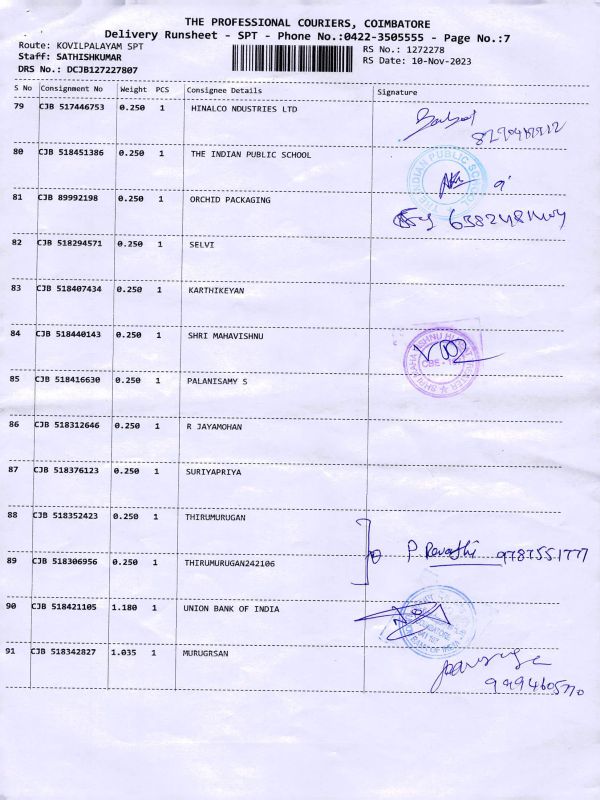 THE PROFESSIONAL COURIERS, COIMBATORE
Delivery Runsheet - SPT - Phone No.:0422-3505555 - Page No.:7
Route: KOVILPALAYAM SPT
RS No.: 1272278
Staff: SATHISHKUMAR
RS Date: 10-Nov-2023
DRS No.: DCJB127227807
S No Consignment No Weight PCS Consignee Details Signature
79 CJB 517446753 0.250 1 HINALCO NDUSTRIES LTD
80 CJB 518451386 0.250 1 THE INDIAN PUBLIC SCHOOL
THE INDIAN PUBLIC SCHOOL
81 CJB 89992198 0.250 1 ORCHID PACKAGING
82 CJB 518294571 0.250 1 SELVI
83 CJB 518407434 0.250 1 KARTHIKEYAN
84 CJB 518440143 0.250 1 SHRI MAHAVISHNU
85 CJB 518416630 0.250 1 PALANISAMY S
86 CJB 518312646 0.250 1 R JAYAMOHAN
87 CJB 518376123 0.250 1 SURIYAPRIYA
88 CJB 518352423 0.250 1 THIRUMURUGAN
P Revathi 9787551777
89 CJB 518306956 0.250 1 THIRUMURUGAN242106
90 CJB 518421105 1.180 1 UNION BANK OF INDIA
COIMBATORE
91 CJB 518342827 1.035 1 MURUGRSAN
9994605770